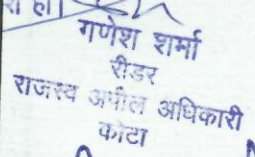 रा हो।
गणेश शर्मा
रीडर
राजस्व अपील अधिकारी
कोटा